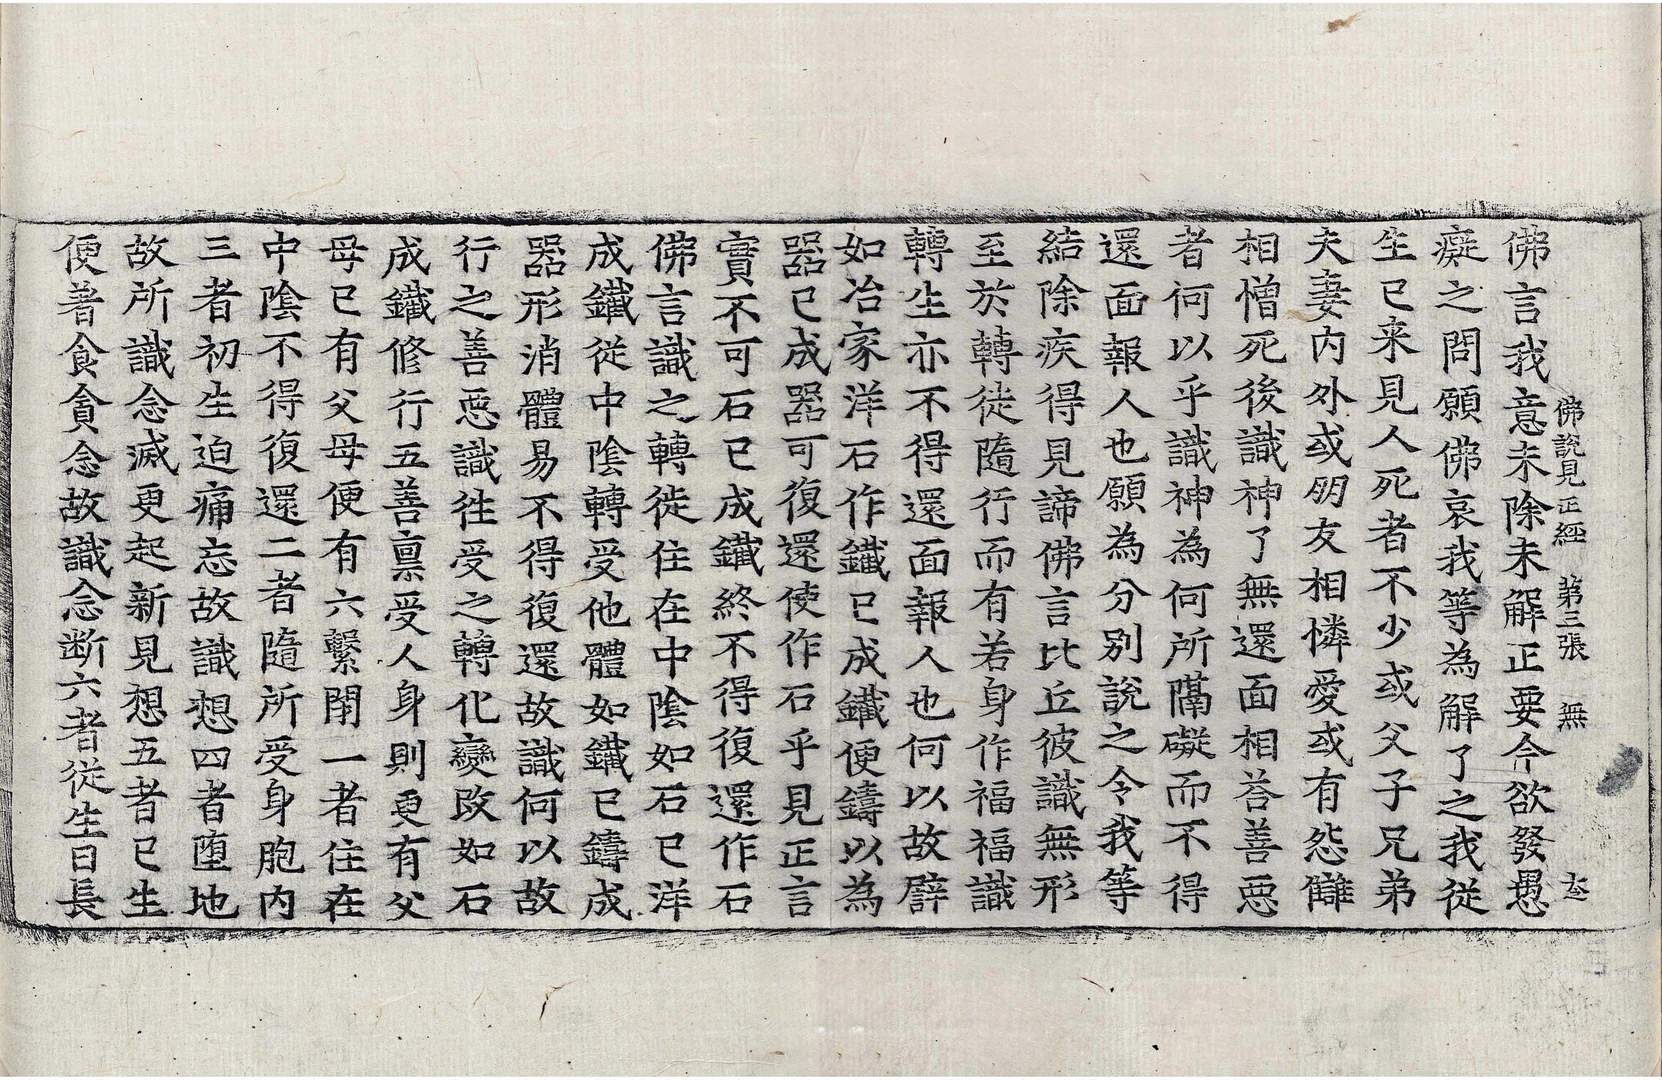 佛說見正經　第三張　無
佛言我意未除未解正要今欲發愚
癡之問願佛哀我等為解了之我從
生已来見人死者不少或父子兄弟
夫妻內外或朋友相憐愛或有怨讎
相憎死後識神了無還面相荅善惡
者何以乎識神為何所隔礙而不得
還面報人也願為分別說之令我等
結除疾得見諦佛言比丘彼識無形
至於轉徙隨行而有若身作福福識
轉生亦不得還面報人也何以故譬
如冶家洋石作鐵已成鐵便鑄以為
器已成器可復還使作石乎見正言
實不可石已成鐵終不得復還作石
佛言識之轉徙住在中陰如石已洋
成鐵從中陰轉受他體如鐵已鑄成
器形消體易不得復還故識何以故
行之善惡識徃受之轉化變改如石
成鐵修行五善稟受人身則更有父
母已有父母便有六繫閉一者住在
中陰不得復還二者隨所受身胞內
三者初生迫痛忘故識想四者墮地
故所識念滅更起新見想五者已生
便著食貪念故識念断六者從生日長